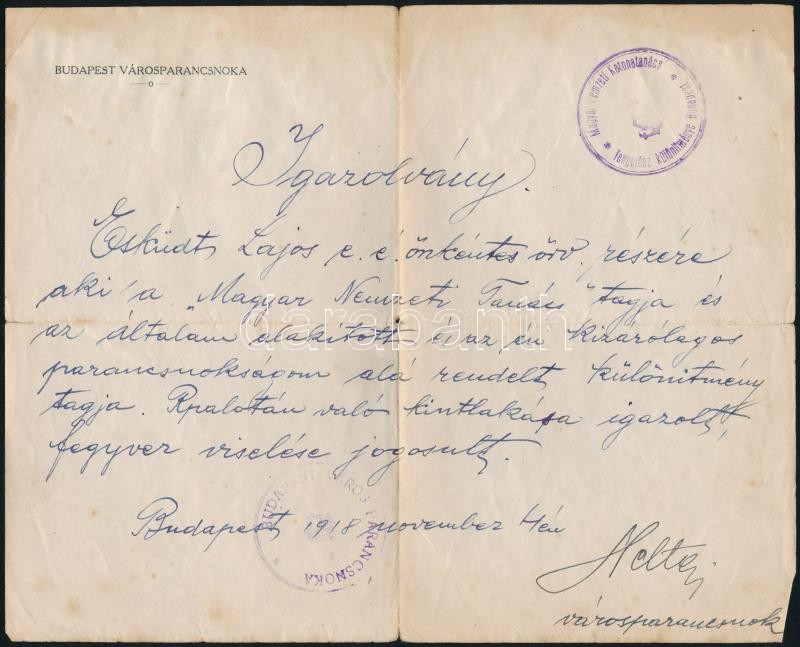 BUDAPEST VÁROSPARANCSNOKA
Magyar Nemzeti Katonatanács * Tengerész különitménye Budapest *
Igazolvány.
Esküdt Lajos e. é. önkéntes őrv. részére
aki a "Magyar Nemzeti Tanács" tagja és
az általam alakitott és az én kizárólagos
parancsnokságom alá rendelt különitmény
tagja. Rpalotán való kintlakása igazolt,
fegyver viselése jogosult.
darabanth
BUDAPEST VÁROS PARANCSNOKA
Budapest 1918 november 4én
Heltai
városparancsnok